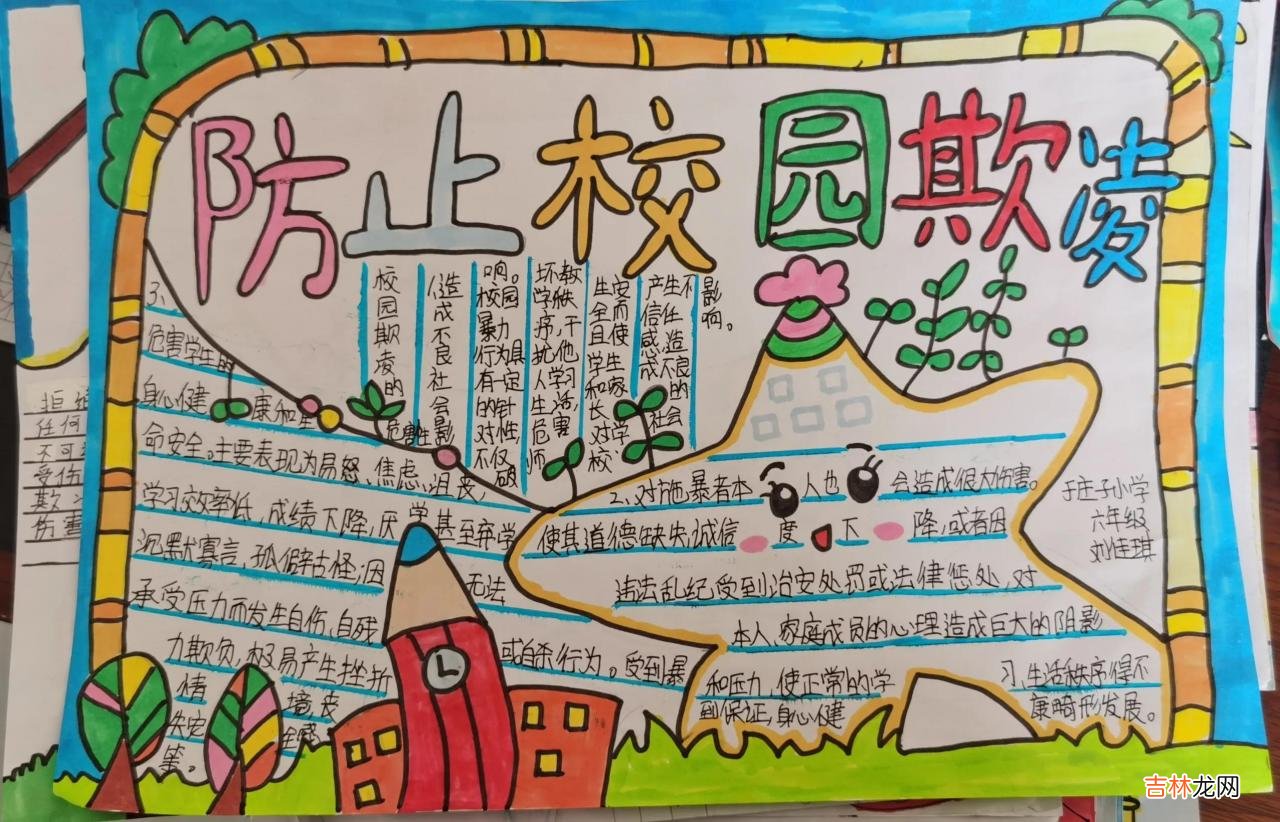 防止校园欺凌
校园欺凌的
危害性影
1、造成不良社会影
响。校园暴力行为具有一定的针对性,不仅破
坏教学秩序,干扰他人学习生活,危害师
生安全而且使学生和家长对学校
产生不信任感,造成不良的社会
影响。
2、对施暴者本人也会造成很大伤害。
使其道德缺失,诚信度下降,或者因
违法乱纪受到治安处罚或法律惩处,对
本人、家庭成员的心理造成巨大的阴影
和压力,使正常的学习、生活秩序得不
到保证,身心健康畸形发展。
3、
危害学生的
身心健康和生
命安全。主要表现为易怒、焦虑、沮丧,
学习效率低,成绩下降,厌学甚至弃学
沉默寡言,孤僻古怪;因无法
承受压力而发生自伤、自残或自杀行为。受到暴
力欺负,极易产生挫折
情境,丧
失安全感
等。
于庄子小学
六年级
刘佳琪
拒
任何
不可
受伤
欺
伤害
吉林龙网